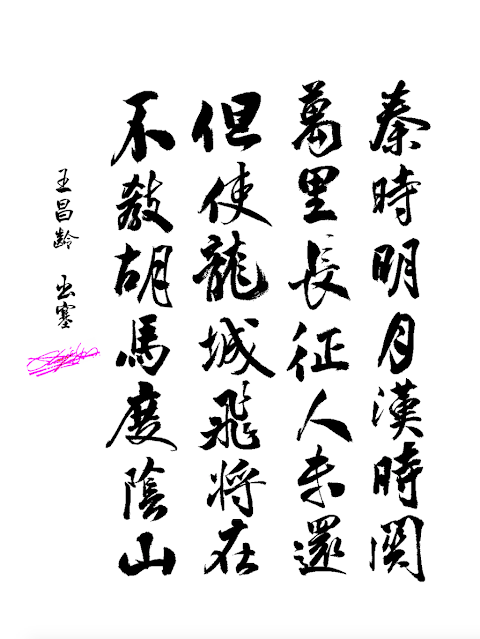 秦時明月漢時関
萬里長征人未還
但使龍城飛将在
不教胡馬度陰山
王昌齡 出塞